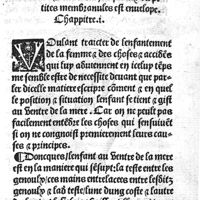 tites membranules est enuelope.
Chappitre.i.
VOulant traicter de lenfantement
de la femme & des choses & accidẽs
qui luy aduiennent en icelup tẽps
me semble estre de necessite deuant que par-
ler dicelle matiere escripre cõment & en quel-
le position & situation lenfant se tient & gist
au ventre de la mere. Car on ne peult pas
facilement entẽdre les choses qui sensuiuẽt
si on ne congnoist premierement leurs cau-
ses & principes.
¶Doncques lenfant au ventre de la mere
est en la maniere qui sẽsupt: la teste entre les
genoulx: les mains entrelacees entre lesditz
genoulx & lad teste: lune dung coste & lautre